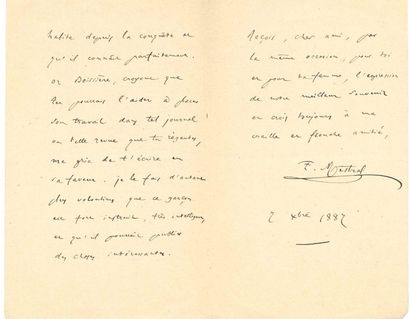 habite depuis la conquête et
qu'il connaît parfaitement.
or Boissière, croyant que
tu pourrais l'aider à placer
son travail dans tel journal
ou telle revue que tu
me prie de t'écrire en
sa faveur. je le fais d'autant
plus volontiers que ce garçon
est fort instruit, très intelligent
et qu'il pourrait publier
des choses intéressantes.
Reçois, cher ami, par
la même occasion, pour toi
et pour ta femme, l'expression
de notre meilleur souvenir
et crois toujours à ma
vieille et franche amitié,
F. Mistral
7 xbre 1887